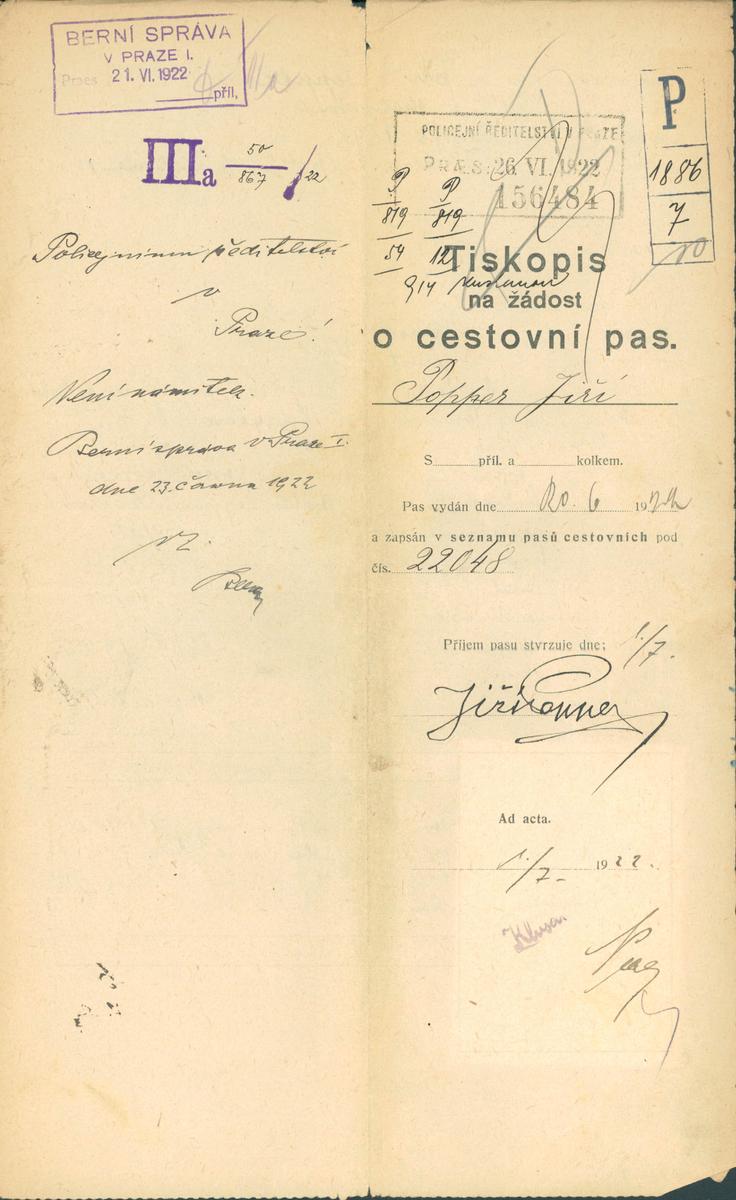 BERNÍ SPRÁVA
V PRAZE I.
Praes 21. VI. 1922
příl.
IIIa 50/867/22
Policejnímu ředitelství
v
Praze!
Není námitek.
Berní správa v Praze I.
dne 23. června 1922
P
1886
7
10
POLICEJNÍ ŘEDITELSTVÍ V PRAZE
PRÆS: 26. VI. 1922
156484
P P
819 819
54 12
914
Tiskopis
na žádost
o cestovní pas.
Popper Jiří
S příl. a kolkem.
Pas vydán dne 30. 6 1922
a zapsán v seznamu pasů cestovních pod
čís. 22048
Příjem pasu stvrzuje dne: 1./7.
Jiří Popper
Ad acta.
1./7. 1922.